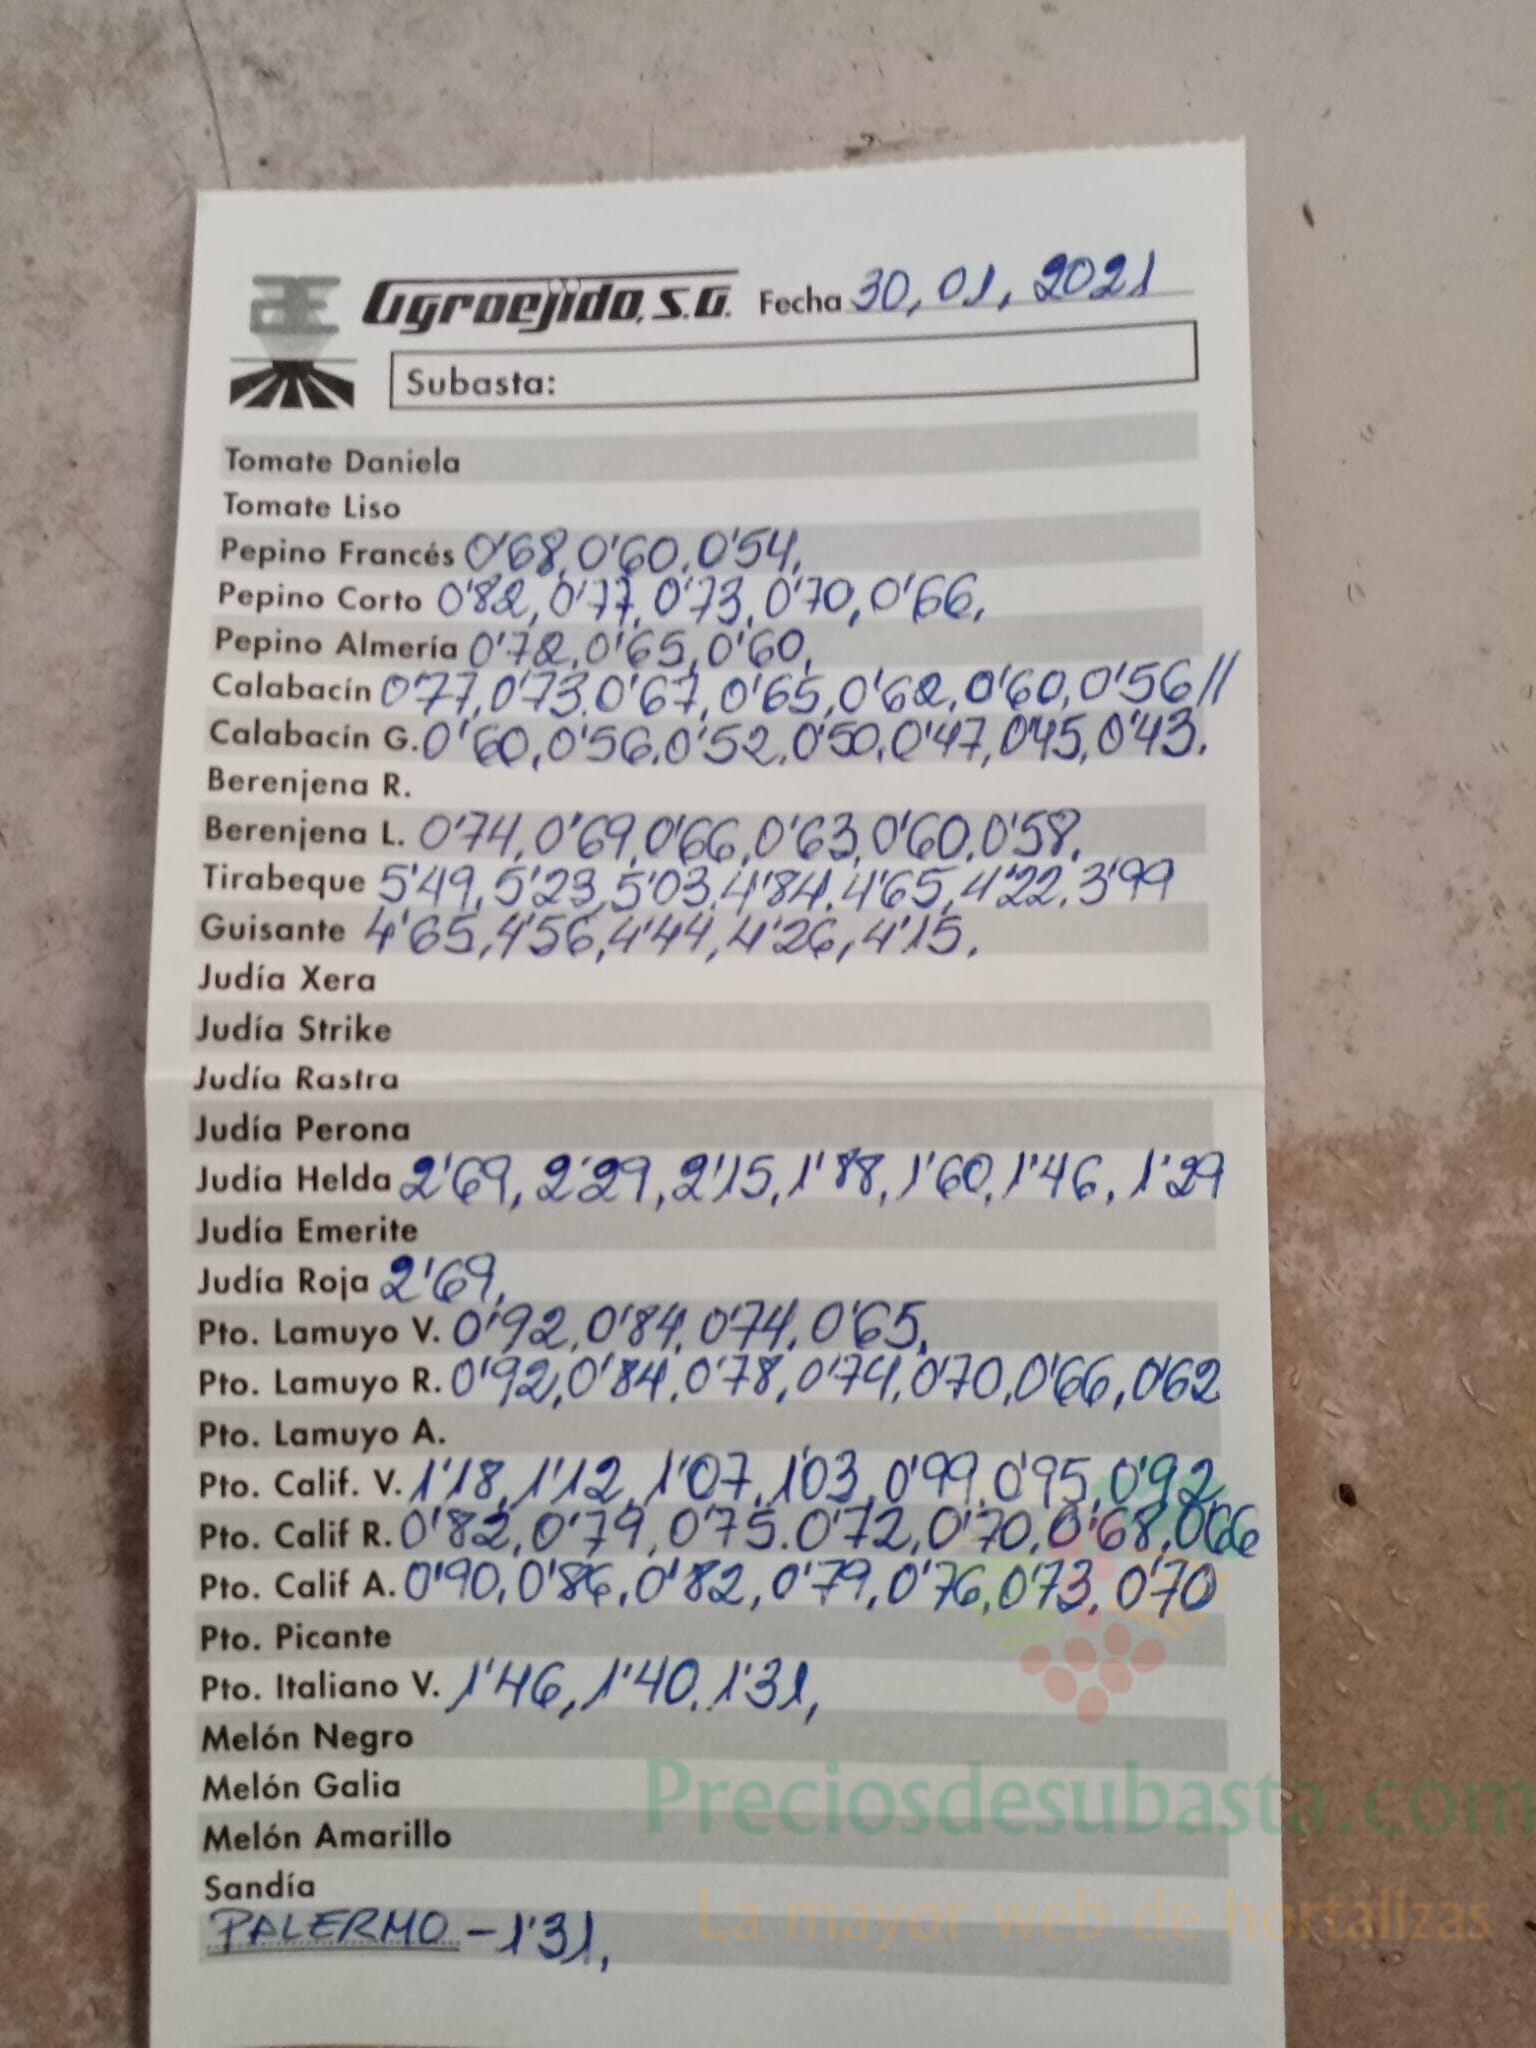 Agroejido, S.A. Fecha 30, 01, 2021
Subasta:
Tomate Daniela
Tomate Liso
Pepino Francés 0'68, 0'60, 0'54,
Pepino Corto 0'82, 0'77, 0'73, 0'70, 0'66,
Pepino Almería 0'72, 0'65, 0'60,
Calabacín 0'77, 0'73, 0'67, 0'65, 0'62, 0'60, 0'56//
Calabacín G. 0'60, 0'56, 0'52, 0'50, 0'47, 0'45, 0'43.
Berenjena R.
Berenjena L. 0'74, 0'69, 0'66, 0'63, 0'60, 0'58,
Tirabeque 5'49, 5'23, 5'03, 4'84, 4'65, 4'22, 3'99
Guisante 4'65, 4'56, 4'44, 4'26, 4'15,
Judía Xera
Judía Strike
Judía Rastra
Judía Perona
Judía Helda 2'69, 2'29, 2'15, 1'88, 1'60, 1'46, 1'29
Judía Emerite
Judía Roja 2'69,
Pto. Lamuyo V. 0'92, 0'84, 0'74, 0'65,
Pto. Lamuyo R. 0'92, 0'84, 0'78, 0'74, 0'70, 0'66, 0'62
Pto. Lamuyo A.
Pto. Calif. V. 1'18, 1'12, 1'07, 1'03, 0'99, 0'95, 0'92
Pto. Calif R. 0'82, 0'79, 0'75, 0'72, 0'70, 0'68, 0'66
Pto. Calif A. 0'90, 0'86, 0'82, 0'79, 0'76, 0'73, 0'70
Pto. Picante
Pto. Italiano V. 1'46, 1'40, 1'31,
Melón Negro
Melón Galia
Preciosdesubasta.com
Melón Amarillo
Sandía
La mayor web de hortalizas
PALERMO - 1'31,